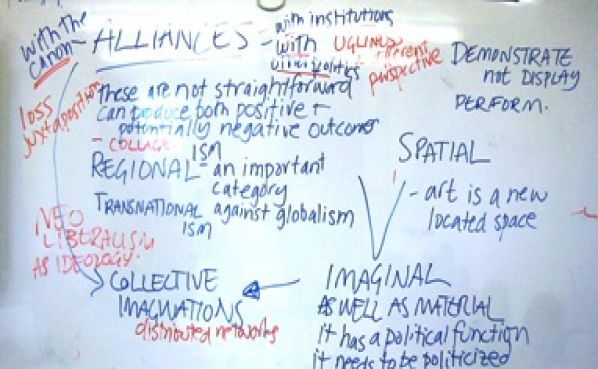 with the
canon
ALLIANCES
with institutions
with UGLINESS
different
perspective
politics
loss
juxtaposition
these are not straightforward
can produce both positive +
potentially negative outcomes
- COLLAGE
REGIONAL ISM - an important
category
TRANSNATIONAL against globalism
ISM
NEO
LIBERALISM
AS IDEOLOGY.
COLLECTIVE
IMAGINATIONS
distributed networks
DEMONSTRATE
not DISPLAY
PERFORM.
SPATIAL
- art is a new
located space
IMAGINAL
AS WELL AS MATERIAL
it has a political function
it needs to be politicized